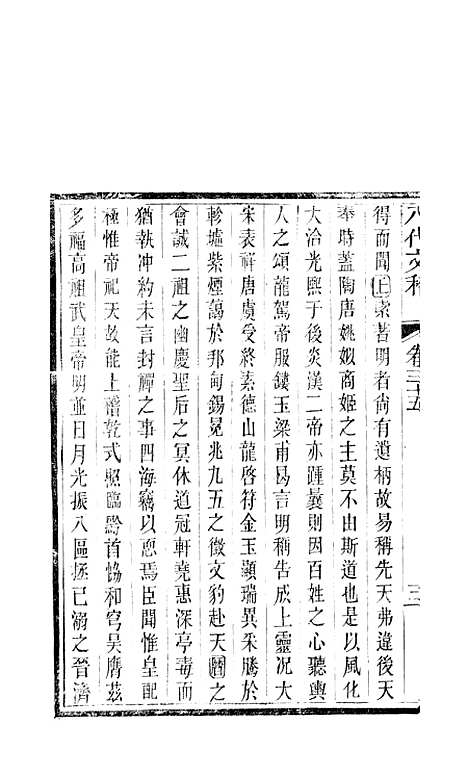 八代文粹　卷三十五　三
得而聞上索著明者尚有遺柄故易稱先天弗違後天
奉時蓋陶唐姚姒商姬之主莫不由斯道也是以風化
大洽光熙于後炎漢二帝亦踵曩則因百姓之心聽輿
人之頌龍駕帝服鏤玉梁甫昌言明稱告成上靈况大
宋表祥唐虞受終素德山龍啓符金玉顯瑞異采騰於
軫墟紫煙藹於邦甸錫冕兆九五之徵文豹赴天曆之
會誠二祖之幽慶聖后之冥休道冠軒堯惠深亭毒而
猶執冲約未言封禪之事四海竊以恧焉臣聞惟皇配
極惟帝祀天故能上稽乾式照臨黔首恊和穹昊膺茲
多福高祖武皇帝明並日月光振八區拯已溺之晉濟